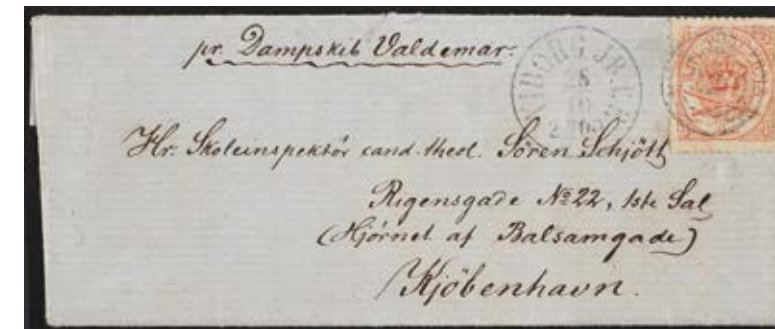 pr. Dampskib Valdemar.
VIBORG JB.P.
28
10
2
Hr. Skoleinspektör cand. theol. Sören Schjött
Rigensgade № 22, 1ste Sal
(Hjörnet af Balsamgade)
Kjöbenhavn.